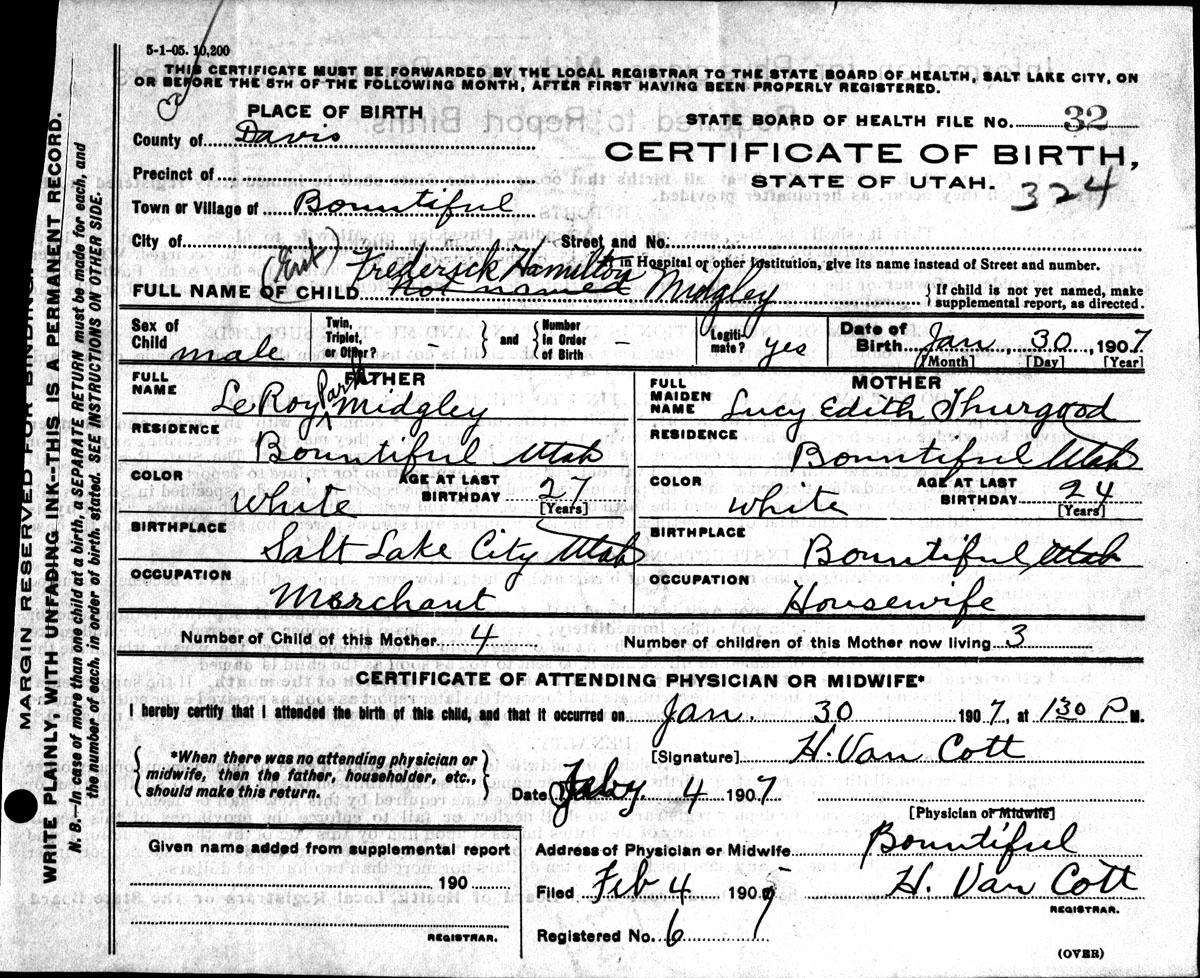 5-1-05. 10,200
THIS CERTIFICATE MUST BE FORWARDED BY THE LOCAL REGISTRAR TO THE STATE BOARD OF HEALTH, SALT LAKE CITY, ON
OR BEFORE THE 5TH OF THE FOLLOWING MONTH, AFTER FIRST HAVING BEEN PROPERLY REGISTERED.
PLACE OF BIRTH
STATE BOARD OF HEALTH FILE NO. 32
County of Davis
CERTIFICATE OF BIRTH,
Precinct of
STATE OF UTAH. 324
Town or Village of Bountiful
City of Street and No:
If in Hospital or other Institution, give its name instead of Street and number.
(Ent) Frederick Hamilton
FULL NAME OF CHILD Not named Midgley
If child is not yet named, make supplemental report, as directed.
Sex of Child male
Twin, Triplet, or Other? -
and
Number in Order of Birth -
Legitimate? yes
Date of Birth Jan. 30, 1907
[Month] [Day] [Year]
FATHER
FULL NAME LeRoy Park Midgley
RESIDENCE Bountiful Utah
COLOR White
AGE AT LAST BIRTHDAY 27 [Years]
BIRTHPLACE Salt Lake City Utah
OCCUPATION Merchant
MOTHER
FULL MAIDEN NAME Lucy Edith Thurgood
RESIDENCE Bountiful Utah
COLOR White
AGE AT LAST BIRTHDAY 24 [Years]
BIRTHPLACE Bountiful Utah
OCCUPATION Housewife
Number of Child of this Mother 4
Number of children of this Mother now living 3
CERTIFICATE OF ATTENDING PHYSICIAN OR MIDWIFE*
I hereby certify that I attended the birth of this child, and that it occurred on Jan. 30 1907, at 130 P M.
*When there was no attending physician or midwife, then the father, householder, etc., should make this return.
[Signature] H. Van Cott
Date 4 1907
[Physician or Midwife]
Given name added from supplemental report
190
REGISTRAR.
Address of Physician or Midwife Bountiful
Filed Feb 4 1907 H. Van Cott
REGISTRAR.
Registered No. 6
(OVER)
MARGIN RESERVED FOR BINDING.
WRITE PLAINLY, WITH UNFADING INK--THIS IS A PERMANENT RECORD.
N. B.—In case of more than one child at a birth, a SEPARATE RETURN must be made for each, and
the number of each, in order of birth stated. SEE INSTRUCTIONS ON OTHER SIDE.